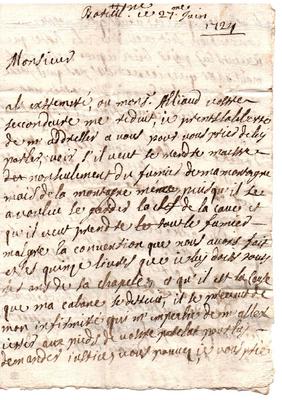 ce 27me Juin
1724
Monsieur
extremité, ou monsr Alliaud vostre
secondaire me reduit je prens la liberté
de m'addresser a vous pour vous prier de luy
parler, il veut se rendre maistre
non seulement du fumier de ma montagne
mais de la montagne mesme puisqu'il
a voulu garder la clef de la cave et
qu'il veut prendre tout le fumier
malgre la convention que nous avons fait
et les quinze livres que
ans de sa chapele, et qu'il est la cause
que ma cabane se detruit, il se prevaut de
mon infirmité qui m'empeche de m'aller
jetter aux pieds de vostre prelat pour luy
demander justice, vous pouvez je vous prie